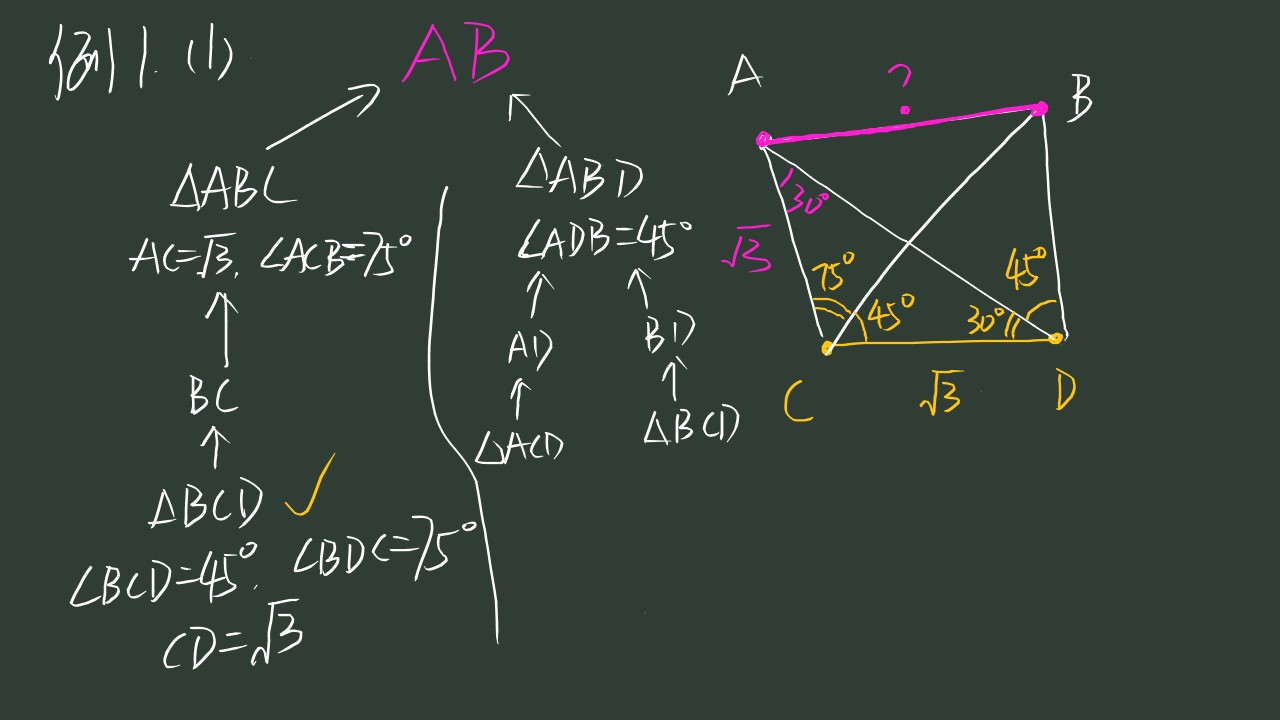 例1.(1)
AB
△ABC
AC=√3, ∠ACB=75°
BC
△BCD ✓
∠BCD=45°, ∠BDC=75°
CD=√3
△ABD
∠ADB=45°
AD
BD
△ACD
△BCD
A
?
B
30°
√3
75°
45°
45°
30°
C
√3
D